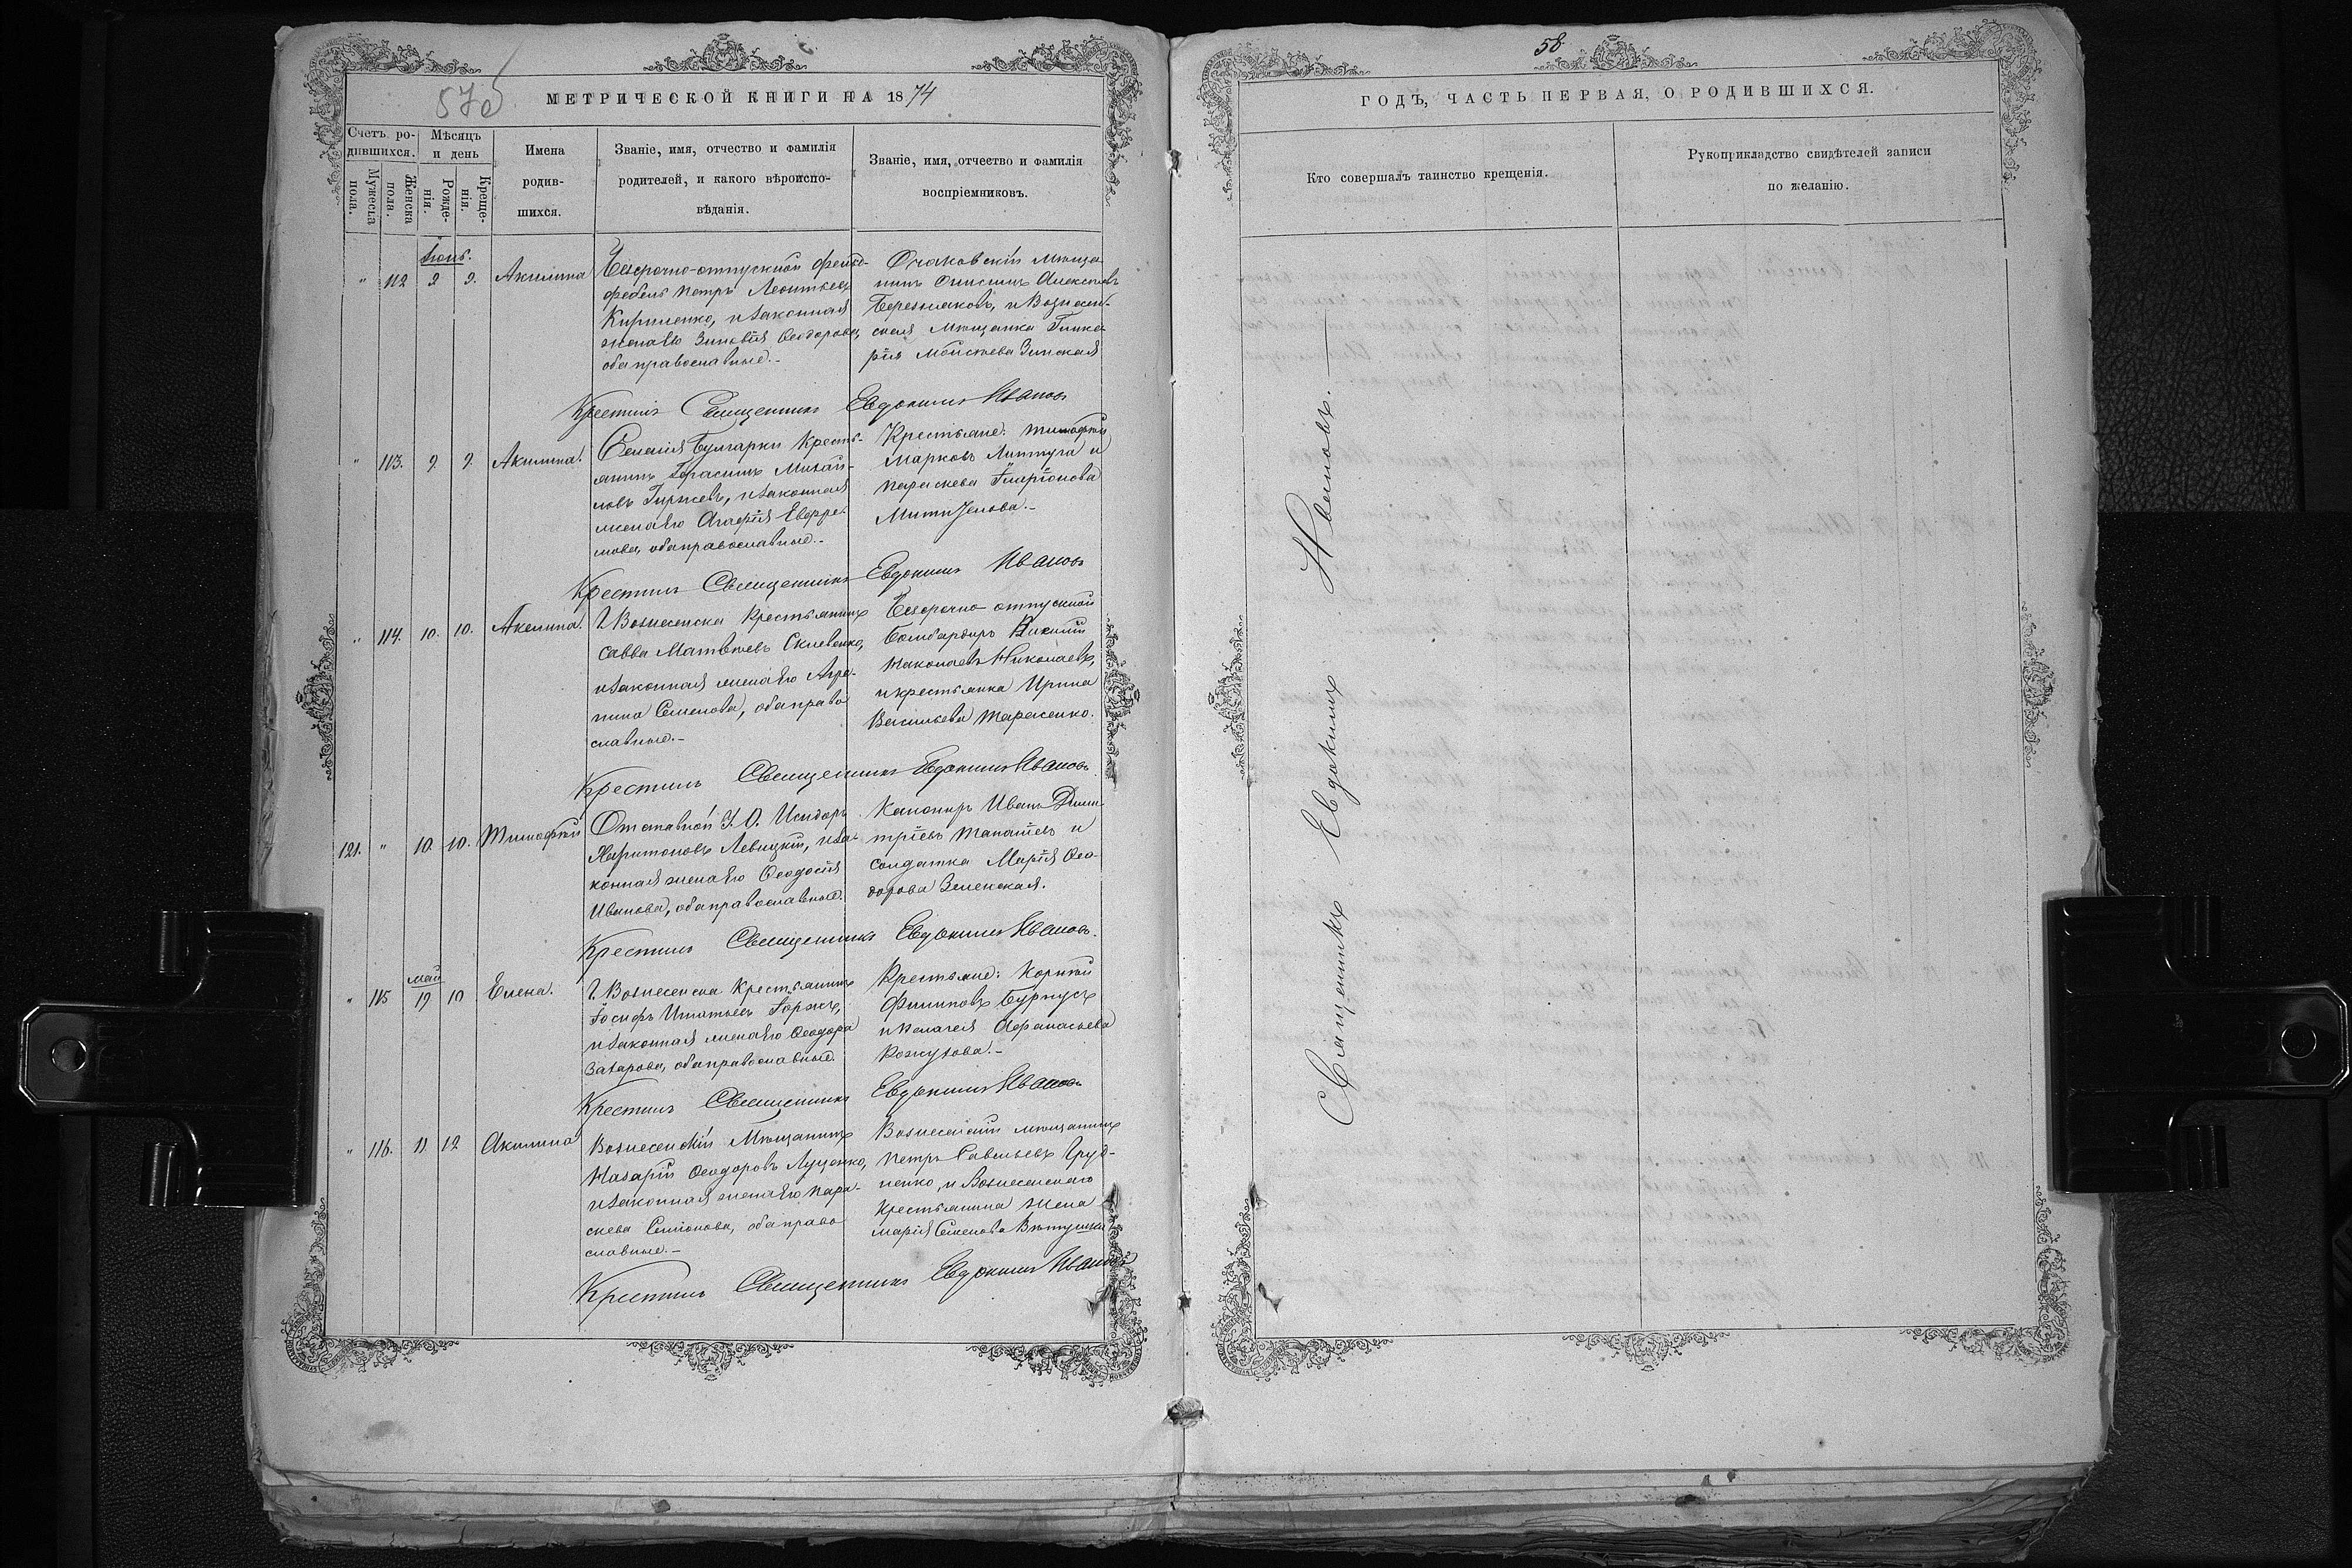 57об
МЕТРИЧЕСКОЙ КНИГИ НА 1874
Счетъ ро-
дившихся.
Мѣсяцъ
и день
Мужеска
пола.
Женска
пола.
Рожде-
нія.
Креще-
нія.
Имена
родив-
шихся.
Званіе, имя, отчество и фамилія
родителей, и какого вѣроиспо-
вѣданія.
Званіе, имя, отчество и фамилія
воспріемниковъ.
Іюнь.
" 112 9 9. Акилина
Безсрочно-отпускной фельд-
фебель Петръ Леонтьевъ
Кириленко, и законная
жена его Зиновія Ѳеодорова,
оба православные.-
Очаковскій мѣща-
нинъ Онисимъ Алексѣевъ
Березняковъ, и Вознесен-
ская мѣщанка Глике-
рія Моисѣева Зинская
Крестилъ Священникъ Евдокимъ Ивановъ
" 113. 9. 9. Акилина.
Селенія Булгарки кресть-
янинъ Герасимъ Михай-
ловъ Гиржевъ, и законная
жена его Агафія Евфре-
мова, оба православные.-
Крестьяне: Тимофей
Марковъ Липтуга и
Параскева Иларіонова
Крестилъ Священникъ Евдокимъ Ивановъ
" 114. 10. 10. Акелина.
Г. Вознесенска крестьянинъ
Савва Матвѣевъ
и законная жена его Агра-
пина Семенова, оба право
славные.-
Безсрочно отпускной
Бомбардиръ
Николаевъ,
и крестьянка Ирина
Васильева Тарасенко.
Крестилъ Священникъ Евдокимъ Ивановъ.
121. " 10. 10. Тимофей
Отставной У. О. Исидоръ
Харитоновъ Левицкій, и за-
конная жена его Ѳеодосія
Иванова, оба православные.
Канониръ Иванъ Дими-
тріевъ и
солдатка Марія Ѳео-
дорова Зеленская.
Крестилъ Священникъ Евдокимъ Ивановъ.
май
" 115 19 10 Елена.
Г. Вознесенска крестьянинъ
Іосифъ Игнатьевъ
и законная жена его Ѳеодора
Захарова, оба православные.
Крестьяне: Корнѣй
Филиповъ
и Пелагея Афанасьева
Крестилъ Священникъ Евдокимъ Ивановъ
" 116. 11 12 Акилина
Вознесенскій мѣщанинъ
Назарій Ѳеодоровъ Луценко,
и законная жена его Пара-
скева Симонова, оба право
славные.-
Вознесенскій мѣщанинъ
Петръ Савельевъ Груд-
ненко, и Вознесенскаго
крестьянина жена
Марія Семенова
Крестилъ Священникъ Евдокимъ Ивановъ
58
ГОДЪ, ЧАСТЬ ПЕРВАЯ, О РОДИВШИХСЯ.
Кто совершалъ таинство крещенія.
Рукоприкладство свидѣтелей записи
по желанію.
Священникъ Евдокимъ Ивановъ.